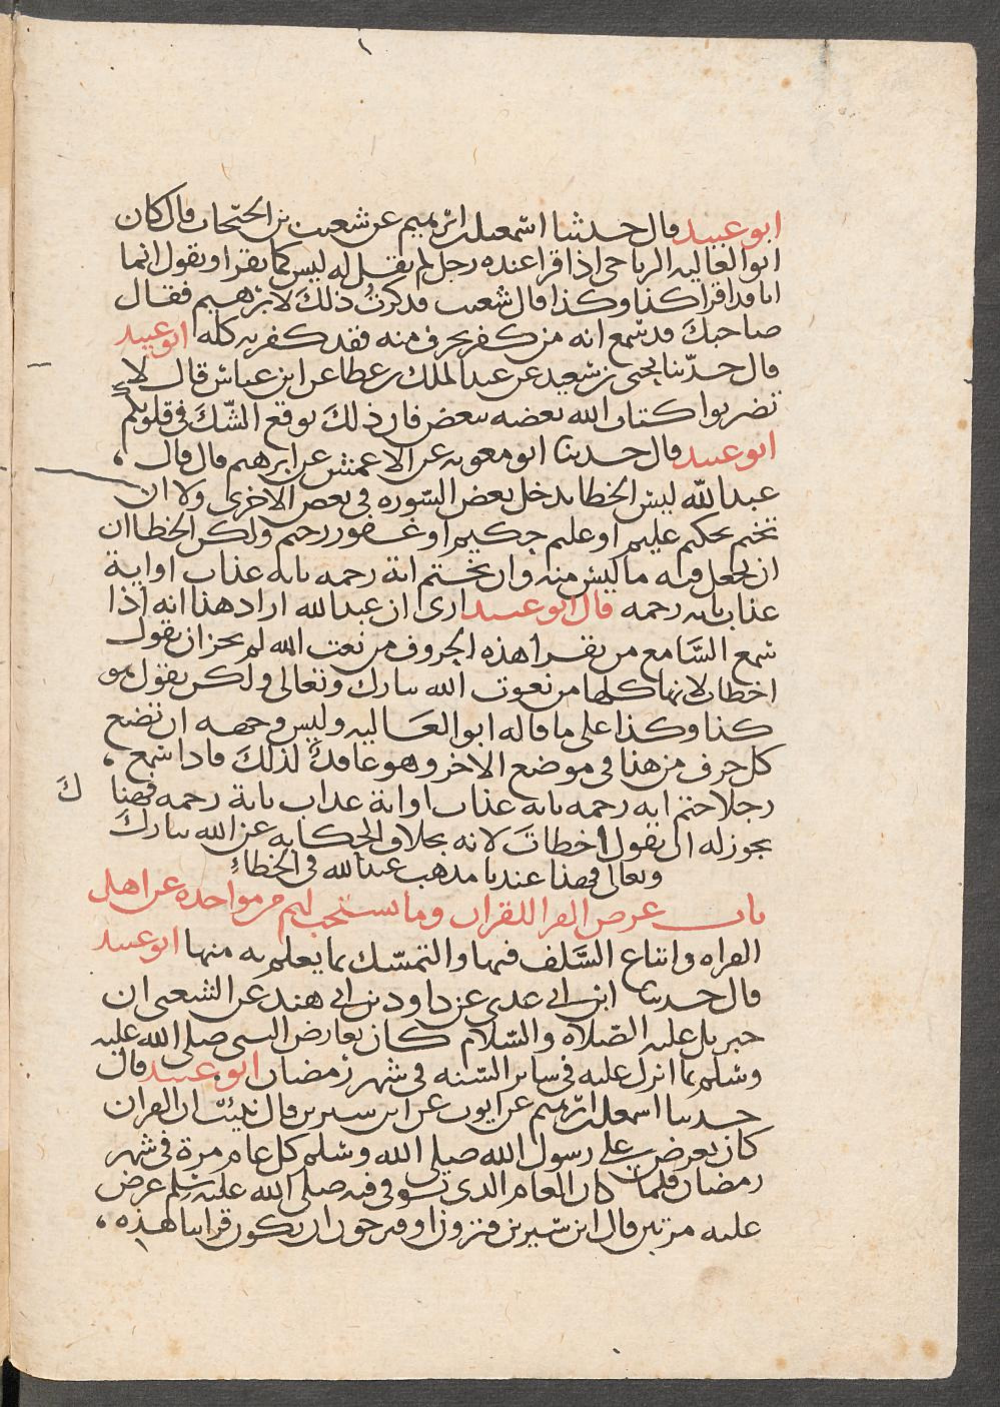 ابو عبيد قال حدثنا اسمعيل ابن ابرهيم عن شعيب بن الحبحاب قال كان
ابو العاليه الرياحي اذا قرا عنده رجل لم يقل له ليس كما يقرا ويقول انما
انا فداقرا كذا وكذا قال شعيب فذكرت ذلك لابرهيم فقال
صاحبك قد سمع انه من كفر بحرف منه فقد كفر به كله ابو عبيد
قال حدثنا يحيى بن سعيد عن عبد الملك بن عطا عن ابن عباس قال لا
تضربوا كتاب الله بعضه ببعض فان ذلك يوقع الشك في قلوبكم
ابو عبيد قال حدثنا ابو معويه عن الاعمش عن ابرهيم قال قال ،
عبد الله ليس الخطا يدخل بعض السوره في بعض الاخرى ولا ان
تختم بحكم عليم او عليم حكيم او غفور رحيم ولكن الخطاان
ان يجعل فيه ما ليس منه وان يختم اية رحمه بايه عذاب او اية
عذاب بايه رحمه قال ابو عبيد ارى ان عبد الله اراد هذا انه اذا
سمع السامع من يقرا هذه الحروف من نعت الله لم يجز ان يقول
اخطات لانها كلها من نعوت الله تبارك وتعالى ولكن يقول هو
كذا وكذا على ما قاله ابو العاليه وليس وجهه ان تضع
كل حرف من هذا في موضع الاخر وهو عامد لذلك فاذا سمع ،
رجلا ختم ايه رحمه بايه عذاب او اية عذاب باية رحمه فهنا ك
يجوز له ان يقول اخطات لانه بخلاف الحكايه عن الله تبارك
وتعالى فهذا عندنا مذهب عبد الله في الخطاء
باب عرض القرا للقران وما يستحب لهم من مواحده عن اهل
القراه واتباع السلف فيها والتمسك بما يعلم به منها ابو عبيد
قال حدثنا ابن ابي عدي عن داود بن ابي هند عن الشعبي ان
جبريل عليه الصلاة والسلام كان يعارض النبي صلى الله عليه
وسلم بما انزل عليه في ساير السنه في شهر رمضان ابو عبيد قال
حدثنا اسمعيل ابن ابرهيم عن ايوب عن ابن سيرين قال نبئت ان القران
كان يعرض على رسول الله صلى الله وسلم كل عام مرة في شهر
رمضان فلما كان العام الذي توفي فيه صلى الله عليه وسلم عرض
عليه مرتين قال ابن سيرين فترون او فيرجون ان يكون قراتنا هذه ،